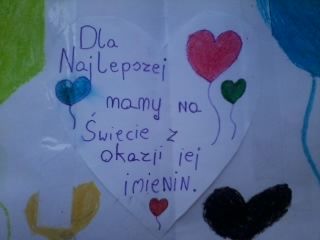 Dla
Najlepszej
mamy na
Świecie z
okazji jej
imienin.